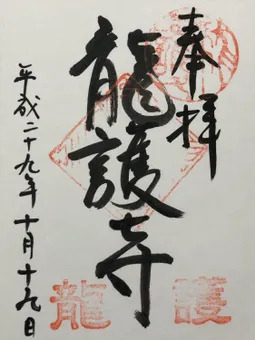 奉拝
龍護寺
平成二十九年十月十六日
龍
護